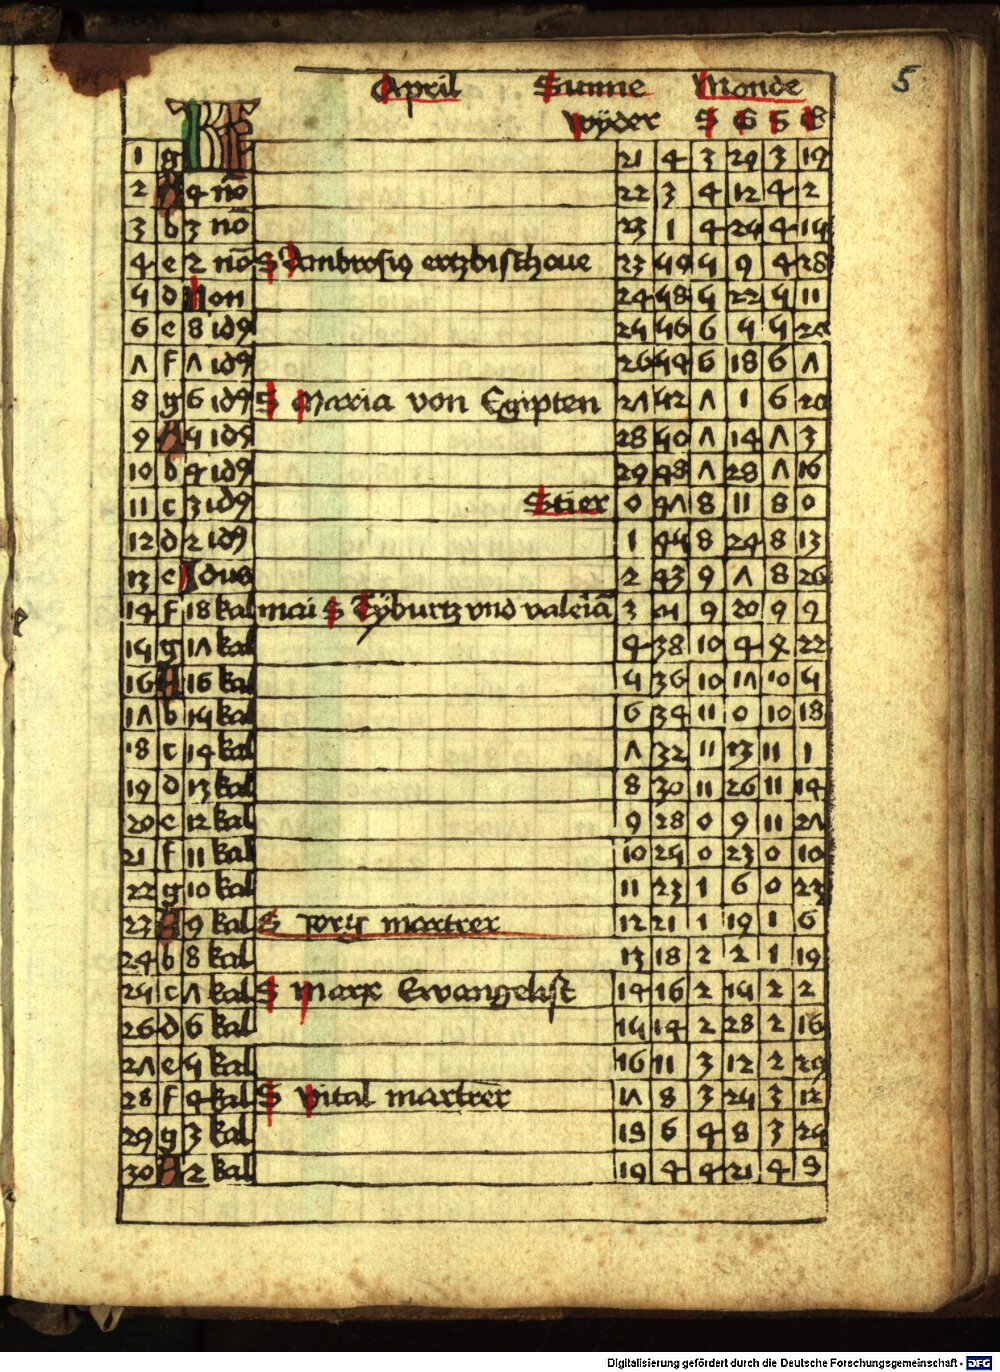 5
April Sunne Monde
wyder S G S G
1 g KL 21 4 3 29 3 19
2 A 4 no 22 3 4 12 4 2
3 b 3 no 23 1 4 24 4 14
4 c 2 no S Ambrosiꝰ ertzbischoue 23 59 5 9 4 28
5 d Non 24 58 5 22 5 11
6 e 8 idꝰ 25 56 6 5 5 24
7 f 7 idꝰ 26 54 6 18 6 7
8 g 6 idꝰ S Maria von Egipten 27 52 7 1 6 20
9 A 5 idꝰ 28 50 7 14 7 3
10 b 4 idꝰ 29 48 7 28 7 16
11 c 3 idꝰ Stier 0 47 8 11 8 0
12 d 2 idꝰ 1 45 8 24 8 13
13 e Idus 2 43 9 7 8 26
14 f 18 kal maii S Tyburtz vnd valeia 3 41 9 20 9 9
15 g 17 kal 4 38 10 4 9 22
16 A 16 kal 5 36 10 17 10 5
17 b 15 kal 6 34 11 0 10 18
18 c 14 kal 7 32 11 13 11 1
19 d 13 kal 8 30 11 26 11 14
20 e 12 kal 9 28 0 9 11 27
21 f 11 kal 10 25 0 23 0 10
22 g 10 kal 11 23 1 6 0 23
23 A 9 kal S Jorij martrer 12 21 1 19 1 6
24 b 8 kal 13 18 2 2 1 19
25 c 7 kal S Marx Ewangelist 14 16 2 15 2 2
26 d 6 kal 15 14 2 28 2 16
27 e 5 kal 16 11 3 12 2 29
28 f 4 kal S vital martrer 17 8 3 25 3 12
29 g 3 kal 18 6 4 8 3 25
30 A 2 kal 19 4 4 21 4 9
Digitalisierung gefördert durch die Deutsche Forschungsgemeinschaft - DFG